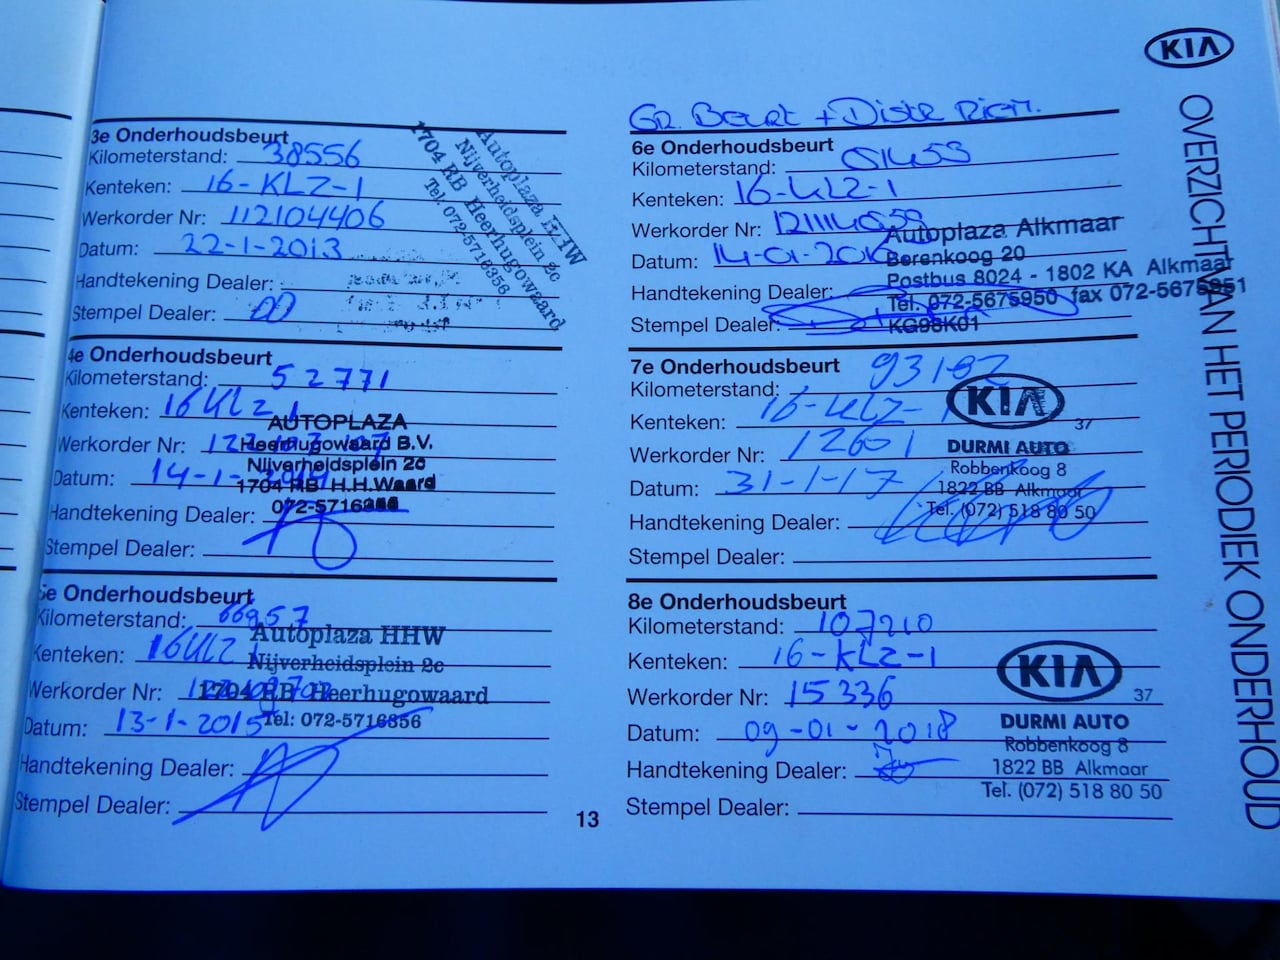 KIA
OVERZICHT VAN HET PERIODIEK ONDERHOUD
3e Onderhoudsbeurt
Kilometerstand: 38556
Kenteken: 16-KLZ-1
Werkorder Nr: 112104406
Datum: 22-1-2013
Handtekening Dealer:
Stempel Dealer:
Autoplaza HHW
Nijverheidsplein 2c
1704 RB Heerhugowaard
Tel: 072-5716356
4e Onderhoudsbeurt
Kilometerstand: 52771
Kenteken: 16KLZ1
Werkorder Nr:
Datum: 14-1-
Handtekening Dealer:
Stempel Dealer:
AUTOPLAZA
Heerhugowaard B.V.
Nijverheidsplein 2c
1704 RB H.H.Waard
5e Onderhoudsbeurt
Kilometerstand: 66957
Kenteken: 16KLZ1
Werkorder Nr:
Datum: 13-1-2015
Handtekening Dealer:
Stempel Dealer:
Autoplaza HHW
Nijverheidsplein 2c
1704 RB Heerhugowaard
Tel: 072-5716356
13
GR. Beurt + Distr Riem.
6e Onderhoudsbeurt
Kilometerstand:
Kenteken: 16-KLZ-1
Werkorder Nr:
Datum: 14-01-2016
Handtekening Dealer:
Stempel Dealer:
Autoplaza Alkmaar
Berenkoog 20
Postbus 8024 - 1802 KA Alkmaar
Tel. 072-5675950 fax 072-5675951
KG98K01
7e Onderhoudsbeurt
Kilometerstand: 93182
Kenteken: 16-KLZ-1
Werkorder Nr: 12601
Datum: 31-1-17
Handtekening Dealer:
Stempel Dealer:
KIA
37
DURMI AUTO
Robbenkoog 8
1822 BB Alkmaar
Tel. (072) 518 80 50
8e Onderhoudsbeurt
Kilometerstand: 107210
Kenteken: 16-KLZ-1
Werkorder Nr: 15336
Datum: 09-01-2018
Handtekening Dealer:
Stempel Dealer:
KIA
37
DURMI AUTO
Robbenkoog 8
1822 BB Alkmaar
Tel. (072) 518 80 50